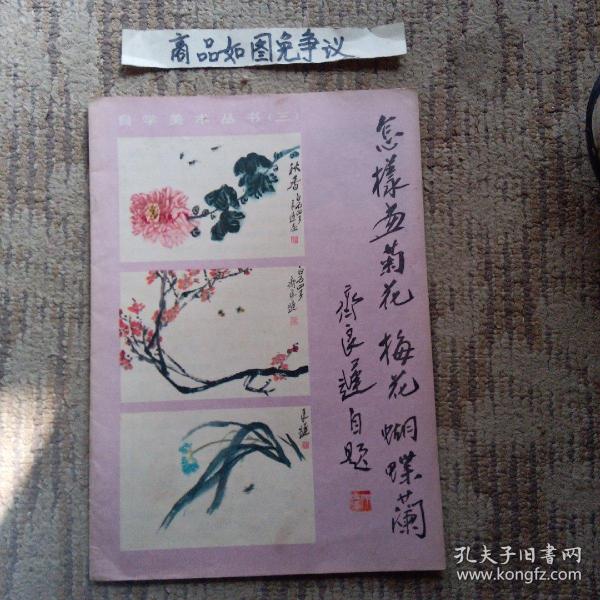 商品如图免争议
自学美术丛书(三)
怎樣画菊花梅花蝴蝶蘭
齊良遲自題
秋香
白石四子
良遲
孔夫子旧书网
www.kongfz.com